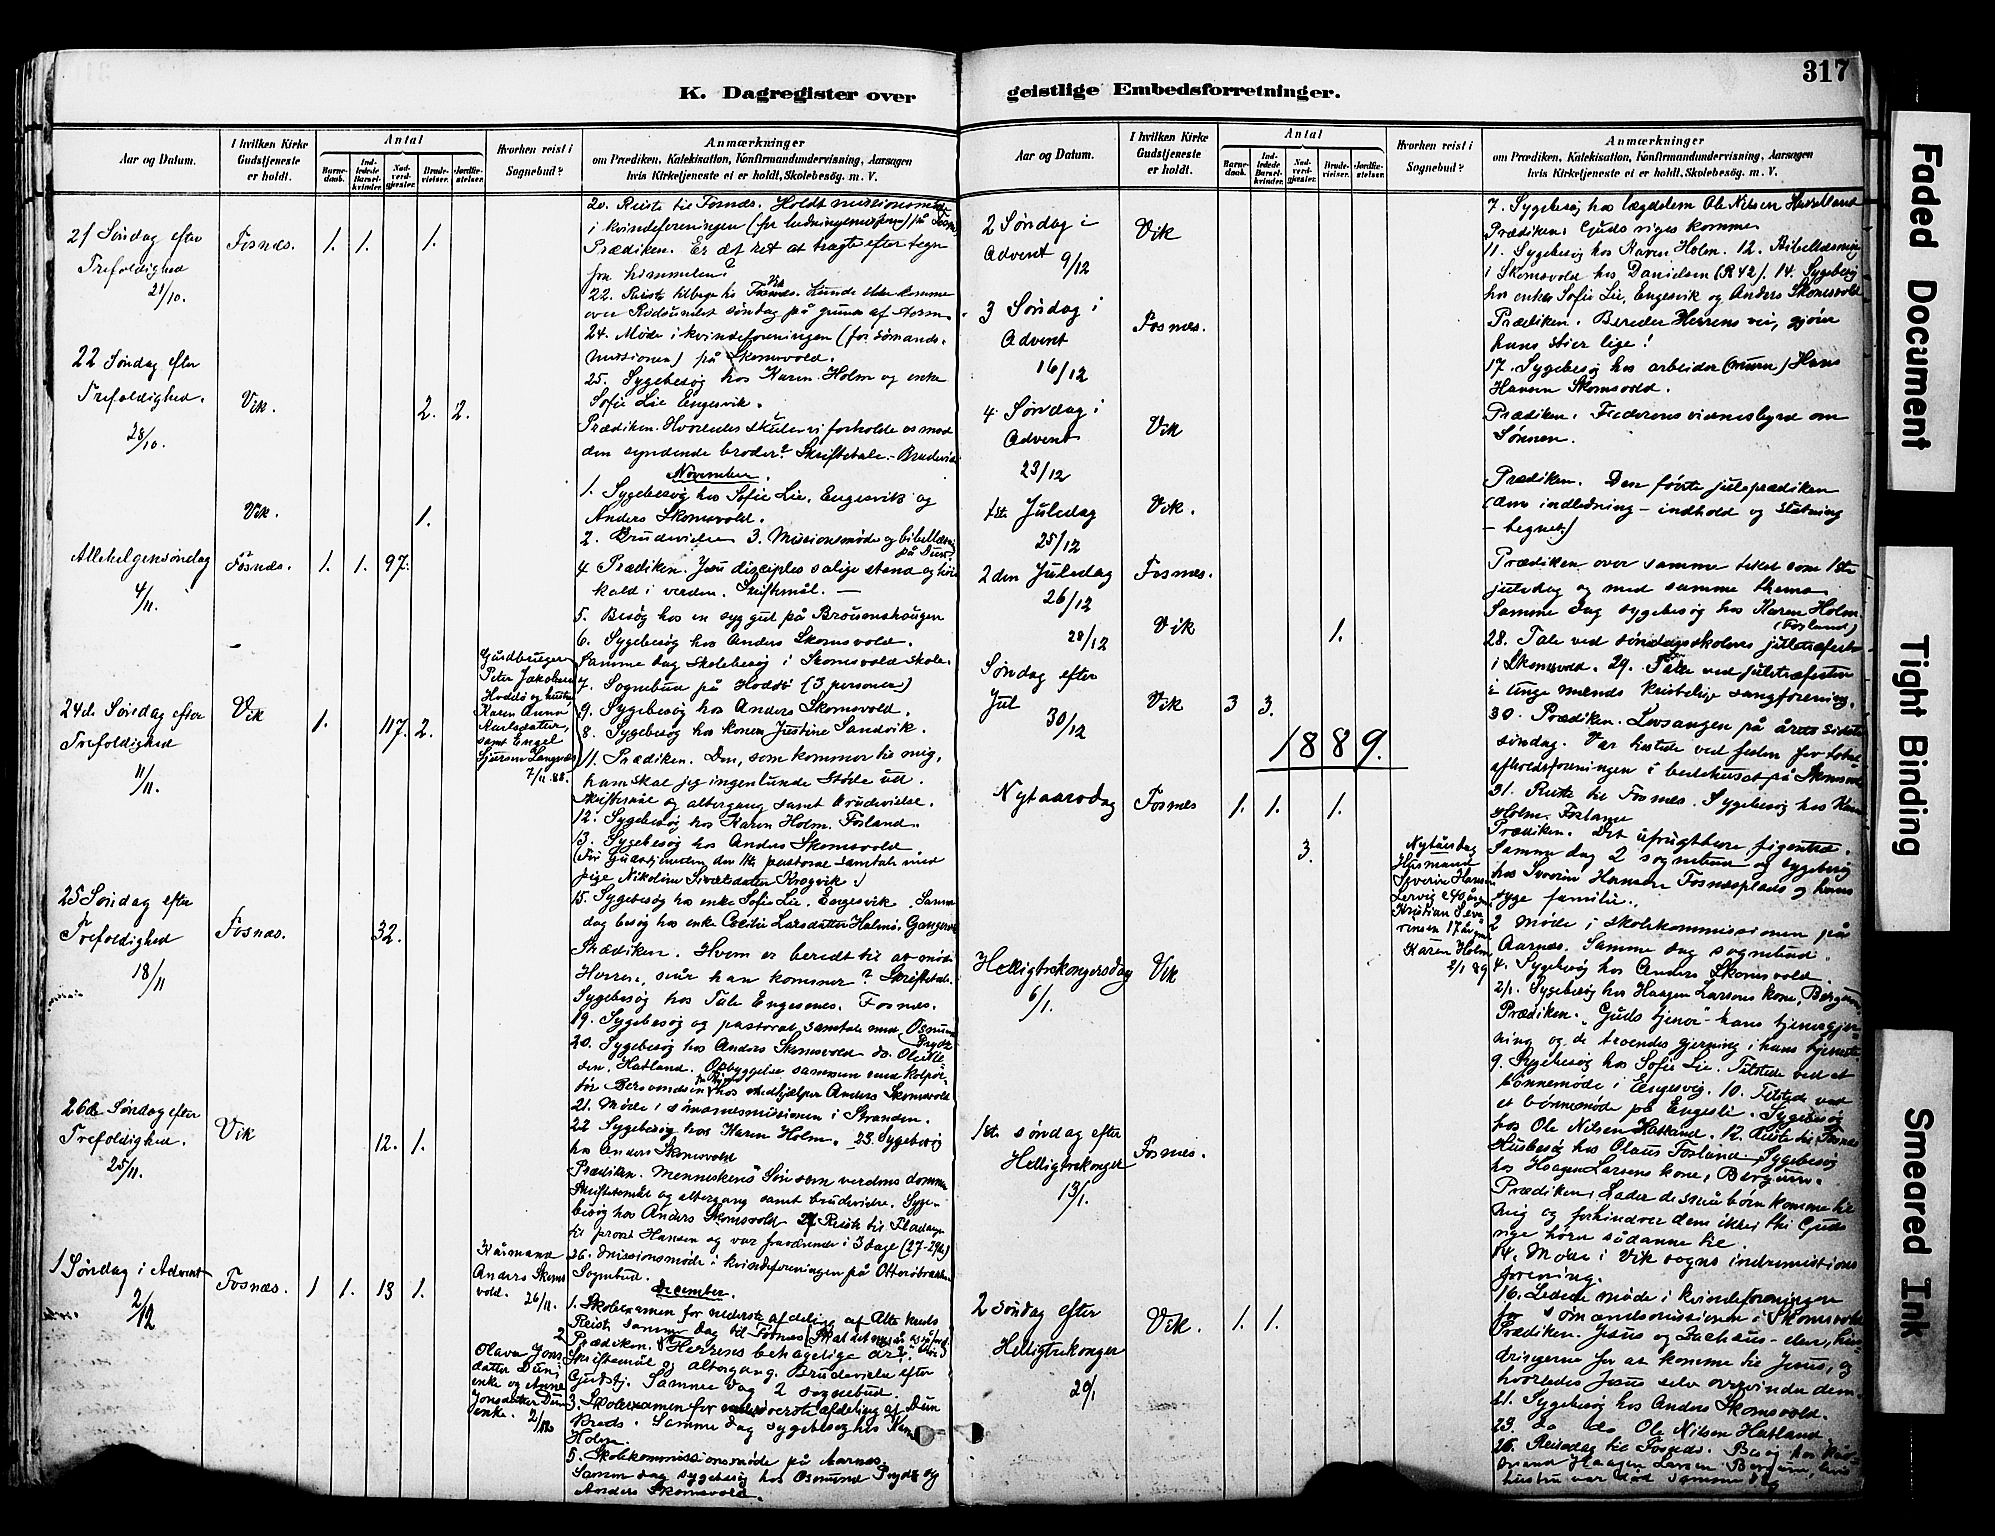 317
K. Dagregister over
geistlige Embedsforretninger.
Aar og Datum.
I hvilken Kirke
Gudstjeneste
er holdt.
Antal
Barne-
daab.
Ind-
ledede
Barsel-
kvinder.
Nad-
verd-
gjester.
Brude-
vielser.
Jordfæ-
stelser.
Hvorhen reist i
Sognebud?
Anmærkninger
om Prædiken, Katekisation, Konfirmandundervisning, Aarsagen
hvis Kirketjeneste ei er holdt, Skolebesøg. m. V.
20. Reiste til Fosnæs. Holdt missionsmøde
i kvindeforeningen
21 Søndag efter Fosnæs. 1. 1. 1. Prædiken. Er det ret at tragte efter tegn
Trefoldighed fra himmelen?
21/10. 22. Reiste tilbage til
over Rødsundet søndag på grund af storm
24. Møde i kvindeforeningen (for sømands-
missionen) på Skomsvold.
22 Søndag efter 25. Sygebesøg hos Karen Holm og enke
Trefoldighed. Vik. 2. 2. Sofie Lie Engesvik.
28/10. Prædiken. Hvorledes skulle vi forholde os mod
den syndende broder? Skriftetale. Brudevielse
November.
1. Sygebesøg hos Sofie Lie, Engesvik og
Vik. 1. Anders Skomsvold.
2. Brudevielse 3. Missionsmøde og bibellæsning
på Duun
Allehelgensøndag Fosnæs. 1. 1. 97. 4 Prædiken. Jesu disciples salige stand og høie
4/11. kald i verden. Skriftemål. —
5. Besøg hos en syg gut på
6. Sygebesøg hos Anders Skomsvold.
Samme dag skolebesøg i Skomsvold skole.
Gårdbruger
Peter Jakobsen
Hoddø og hustru
Karen Anna
Karlsdatter,
samt Engel
Sjursen Langnæs
7/11. 88.
7. Sognebud på Hoddø (3 personer)
9. Sygebesøg hos Anders Skomsvold.
24de Søndag efter Vik 1. 117. 2. 8. Sygebesøg hos konen Justine Sandvik.
Trefoldighed 11. Prædiken. Den, som kommer til mig,
11/11. ham skal jeg ingenlunde støde ud.
Skriftemål og altergang samt brudevielse.
12. Sygebesøg hos Karen Holm. Fosland.
13. Sygebesøg hos Anders Skomsvold
(Før gudstjenesten den 11te pastoral samtale med
pige Nikoline Sivertsdatter Krogvik.)
25 Søndag efter Fosnæs. 32. 15. Sygebesøg hos enke Sofie Lie. Engesvik. Samme
Trefoldighed dag besøg hos enke Cecilie Larsdatter Holmø,
18/11 Prædiken. Hvem er beredt til at møde
Herren, når han kommer? Skriftetale.
Sygebesøg hos Tale Engesnes. Fosnæs.
19. Sygebesøg og pastoral samtale med Osmund
Prydz
20. Sygebesøg hos Anders Skomsvold do. Ole
Hatland. Opbyggelse sammen med kolpor-
tør Berssvendsen hos medhjælper Anders Skomsvold
21. Møde i sømandsmissionen i Stranden.
26de Søndag efter Vik 12. 1. 22 Sygebesøg hos Karen Holm. 23. Sygebesøg
Trefoldighed. hos Anders Skomsvold
25/11. Prædiken. Menneskens Søn som verdens dommer
Skriftemål og altergang samt brudevielse. Syge-
besøg hos Anders Skomsvold 27 Reiste til
til provst Hansen og var fraværende i 3 dage (27-29de)
Kårmand
Anders Skoms
vold.
26/11.
26. Missionsmøde i kvindeforeningen på
Sognebud.
December.
1 Søndag i Advent Fosnæs. 1 1. 13 1. 1. Skoleexamen for nederste afdeling af Alte kreds
2/12 Reiste samme dag til Fosnæs
Prædiken. Herrens behagelige år
Olava Jons
datter Duun
enke og Anne
Jonsdatter Duun
enke. 2/12.
Skriftemål og altergang. Brudevielse efter
Gudstj. Samme dag 2 sognebud.
3. Skoleexamen for øverste afdeling af Duun
kreds. Samme dag sygebesøg hos Karen
Holm
5. Skolekommissionsmøde på Aarnes.
Samme dag sygebesøg hos Osmund Prydz og
Anders Skomsvold.
Aar og Datum.
I hvilken Kirke
Gudstjeneste
er holdt.
Antal
Barne-
daab.
Ind-
ledede
Barsel-
kvinder.
Nad-
verd-
gjester.
Brude-
vielser.
Jordfæ-
stelser.
Hvorhen reist i
Sognebud?
Anmærkninger
om Prædiken, Katekisation, Konfirmandundervisning, Aarsagen
hvis Kirketjeneste ei er holdt, Skolebesøg. m. V.
7. Sygebesøg hos lægdelem Ole Nilsen Hatland
2 Søndag i Vik Prædiken. Guds riges komme
Advent 11. Sygebesøg hos Karen Holm. 12. Bibellæsning
9/12 i Skomsvold hos Danielsen (R 42). 14. Sygebesøg
hos enke Sofie Lie, Engesvik og Anders Skomsvold
3 Søndag i Fosnæs. Prædiken. Bereder Herrens vei, gjører
Advent hans stier lige!
16/12 17. Sygebesøg hos arbeider (murer) Hans
Hansen Skomsvold.
4 Søndag i Vik Prædiken. Faderens vidnesbyrd om
Advent Sønnen.
23/12
1ste Juledag Vik. Prædiken. Den første juleprædiken
25/12 (dens indledning – indhold og slutning
– begnet)
2den Juledag Fosnæs. Prædiken over samme tekst som 1ste
26/12 juledag og med samme thema
Samme dag sygebesøg hos Karen Holm.
(Fosland)
28/12 Vik 1. 28. Tale ved søndagsskolens juletræfest
i Skomsvold. 29. Tale ved juletræfesten
Søndag efter i unge mænds kristelige sangforening.
Jul Vik 3 3. 30. Prædiken. Lovsangen på årets sidste
30/12 søndag. Var tilstede ved festen for total-
afholdsforeningen i bedehuset på Skomsvold
1889.
31. Reiste til Fosnæs. Sygebesøg hos Karen
Holm. Fosland
Nytaarsdag Fosnæs 1. 1. 1. Prædiken. Det ufrugtbare figentræ.
3.
Nytårsdag
Husmand
Severin Hansen
Lervig 40 år gm
Kristian Seve-
rinsen 17 år gm
Karen Holm
2/1 89
Samme dag 2 sognebud og sygebesøg
hos Severin Hansen Fosnæsplads og hans
syge familie.
2 Møde i skolekommissionen på
Aarnes. Samme dag sognebud.
4. Sygebesøg hos Anders Skomsvold.
2/1. Sygebesøg hos Haagen Larsens kone, Bergum
Helligtrekongersdag Vik Prædiken. „Guds tjener" – hans tjenergjer-
6/1. ning og de troendes gjerning i hans tjeneste
9. Sygebesøg hos Sofie Lie. Tilstede ved et
bønnemøde i Engesvig. 10. Tilstede ved
et bønnemøde på Engesli. Sygebesøg
hos Ole Nilsen Hatland. 12. Reiste til Fosnæs
Husbesøg hos Olaus Fosland, Sygebesøg
hos Haagen Larsens kone, Bergum.
1ste søndag efter Fosnæs. Prædiken. Lader de små børn komme til
Helligtrekonger mig og forhindrer dem ikke; thi Guds
13/1. rige hører sådanne til.
14. Møde i Vik sogns indremissions
forening.
16. Ledede møde i kvindeforeningen
for sømandsmissionen i Skomsvold
2 søndag efter Vik. 1. 1. Prædiken. Jesus og Zachæus –
Helligtrekonger dringerne for at komme til Jesus, og
20/1 hvorledes Jesus selv overvinder dem.
21. Sygebesøg hos Anders Skomsvold.
23. do do Ole Nilsen Hatland.
26. Reisedag til Fosnæs. Besøg hos
mand Haagen Larsen Bergum,
hustru var død samme dag
Faded Document
Tight Binding
Smeared Ink